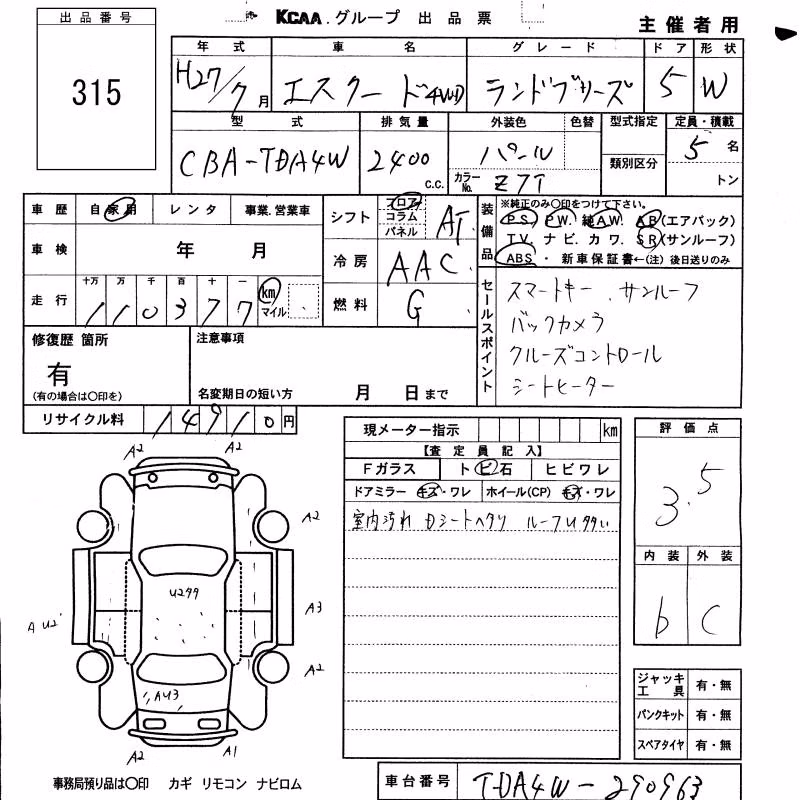 出品番号
315
KCAA.グループ 出品票
主催者用
年式 車名 グレード ドア 形状
H27/7月 エスクード4WD ランドブリーズ 5 W
型式 排気量 外装色 色替 型式指定 定員・積載
CBA-TDA4W 2400 c.c. パール 5名
類別区分
カラーNo. Z7T トン
車歴 自家用 レンタ 事業.営業車
車検 年 月
走行 十万 万 千 百 十 一
110377 km マイル
シフト フロア コラム パネル AT
冷房 AAC
燃料 G
装備品 ※純正のみ○印をつけて下さい。
PS. PW. 純AW. AB(エアバック)
TV. ナビ. カワ. SR(サンルーフ)
ABS・新車保証書←(注)後日送りのみ
セールスポイント
スマートキー.サンルーフ
バックカメラ
クルーズコントロール
シートヒーター
修復歴 箇所
有
(有の場合は○印を)
注意事項
名変期日の短い方 月 日まで
リサイクル料 14910円
現メーター指示 km
【査定員記入】
Fガラス トビ石 ヒビワレ
ドアミラー キズ・ワレ ホイール(CP) キズ・ワレ
室内汚れ Dシートヘタリ ルーフU
評価点
3.5
内装 外装
b C
ジャッキ工具 有・無
パンクキット 有・無
スペアタイヤ 有・無
A2 A2
A2
U299
A U2
A3
A2
AU3
A2 A1
事務局預り品は○印 カギ リモコン ナビロム
車台番号 TDA4W-290963